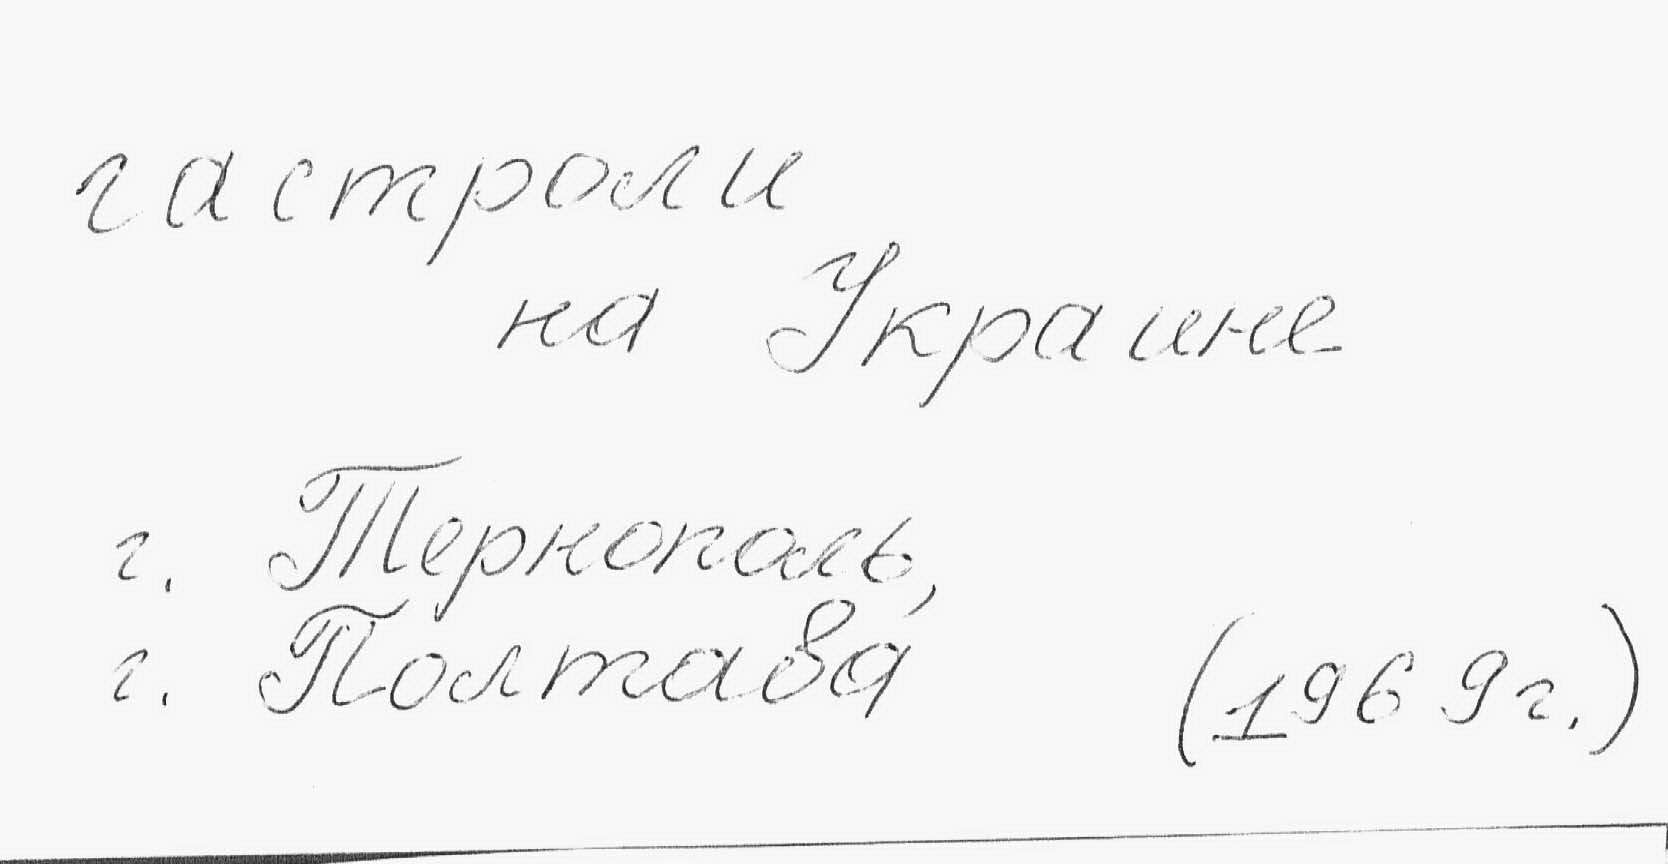 гастроли
на Украине
г. Тернополь,
г. Полтава (1969г.)